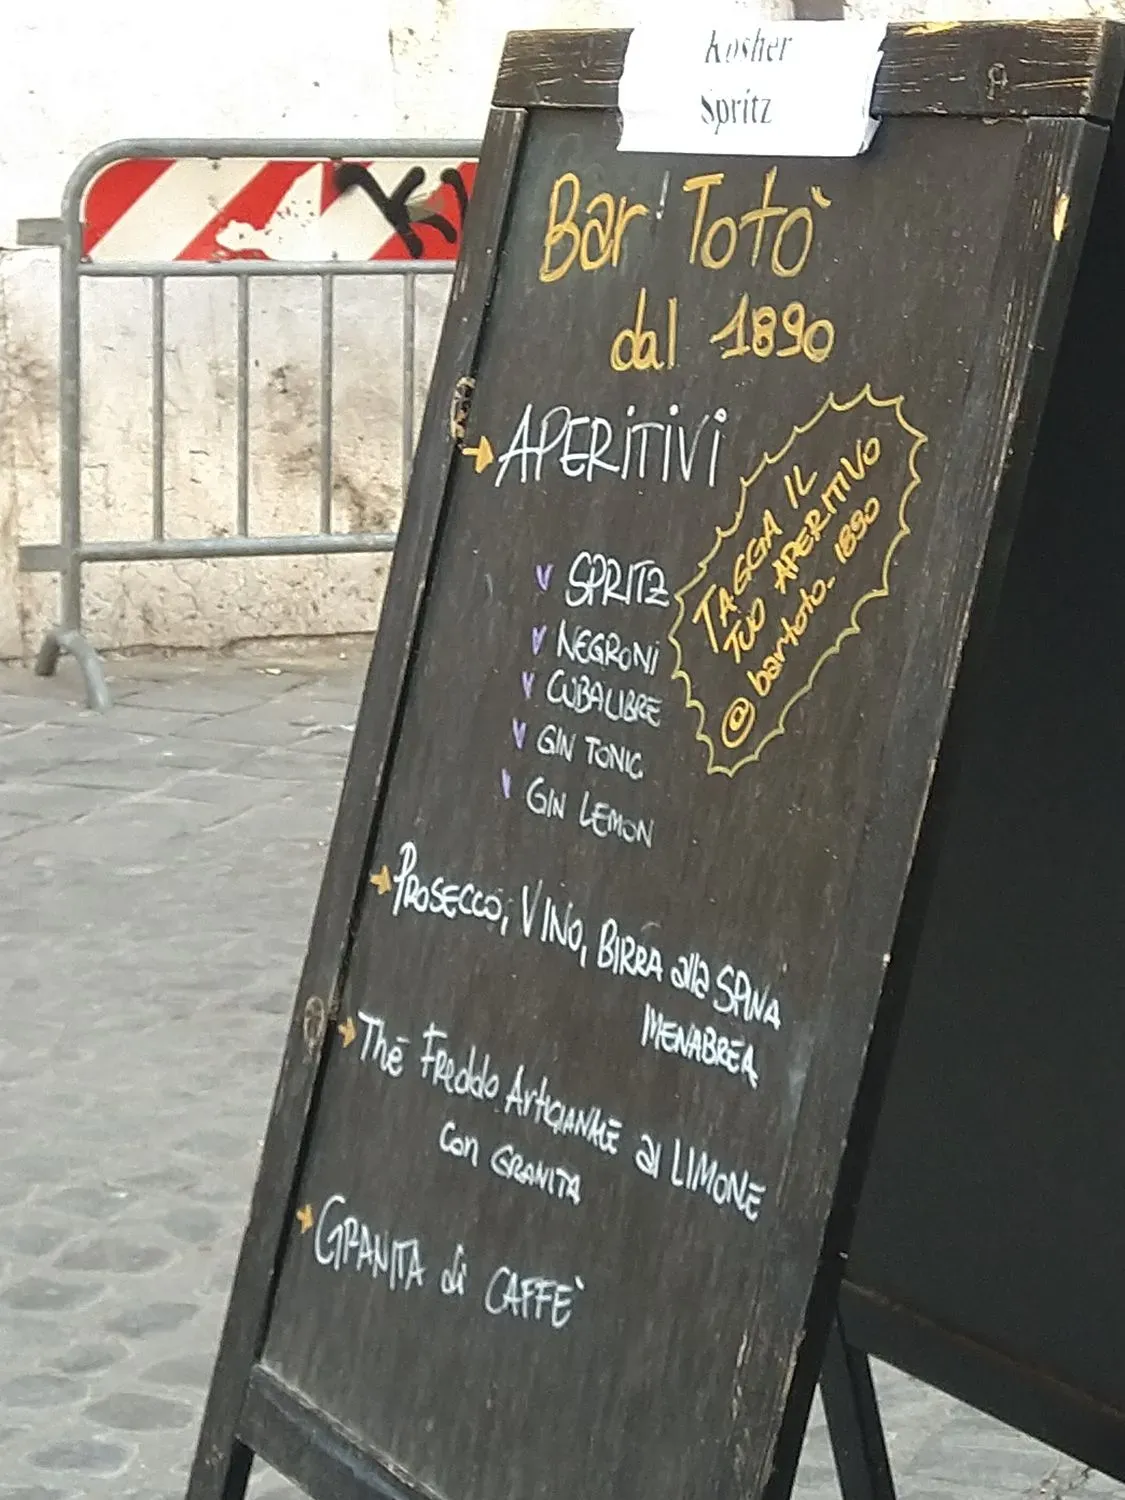 Kosher
Spritz
Bar Totò
dal 1890
APERITIVI
TAGGA IL
TUO APERITIVO
@ bartoto_1890
SPRITZ
NEGRONI
CUBALIBRE
GIN TONIC
GIN LEMON
PROSECCO, VINO, BIRRA alla SPINA
MENABREA
Thé FREDDO ARTIGIANALE al LIMONE
con GRANITA
GRANITA di CAFFE'